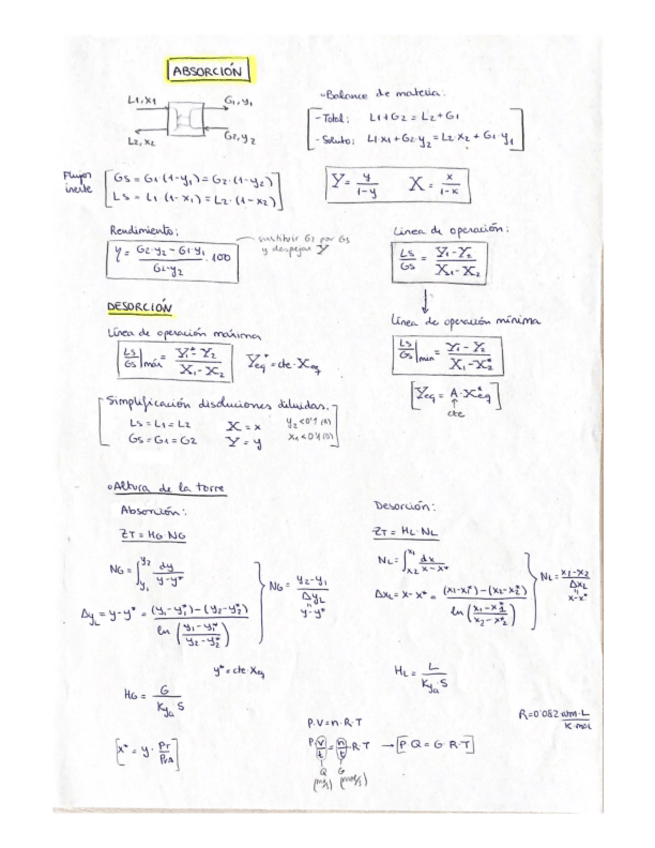 ABSORCIÓN
L1, x1
G1, y1
L2, x2
G2, y2
Balance de materia:
- Total: L1 + G2 = L2 + G1
- Soluto: L1·x1 + G2·y2 = L2·x2 + G1·y1
Flujos inerte
Gs = G1·(1-y1) = G2·(1-y2)
Ls = L1 (1-x1) = L2·(1-x2)
Y = y/(1-y) X = x/(1-x)
Rendimiento:
η = (G2·y2 - G1·y1)/(G2·y2) · 100
sustituir G2 por Gs
y despejar Y
Línea de operación:
Ls/Gs = (Y1-Y2)/(X1-X2)
DESORCIÓN
Línea de operación máxima
Ls/Gs|máx = (Y1*-Y2)/(X1-X2) Yeq* = cte·Xeq
Línea de operación mínima
Ls/Gs|min = (Y1-Y2)/(X1-X2*)
[Yeq = A·Xeq*]
cte
Simplificación disoluciones diluidas.
Ls = L1 = L2 X = x y2 < 0'1
Gs = G1 = G2 Y = y x1 < 0'1
Altura de la torre
Absorción:
ZT = HG·NG
NG = ∫y1^y2 dy/(y-y*)
ΔyL = y-y* = ((y1-y1*)-(y2-y2*))/ln((y1-y1*)/(y2-y2*))
NG = (y2-y1)/ΔyL
y-y*
y* = cte·Xeq
HG = G/(Kya·S)
[x* = y·PT/PvA]
Desorción:
ZT = HL·NL
NL = ∫x2^x1 dx/(x-x*)
ΔxL = x-x* = ((x1-x1*)-(x2-x2*))/ln((x1-x1*)/(x2-x2*))
NL = (x1-x2)/ΔxL
x-x*
HL = L/(Kya·S)
R = 0'082 atm·L/(K·mol)
P·V = n·R·T
P·V/t = n/t·R·T → [P·Q = G·R·T]
Q G